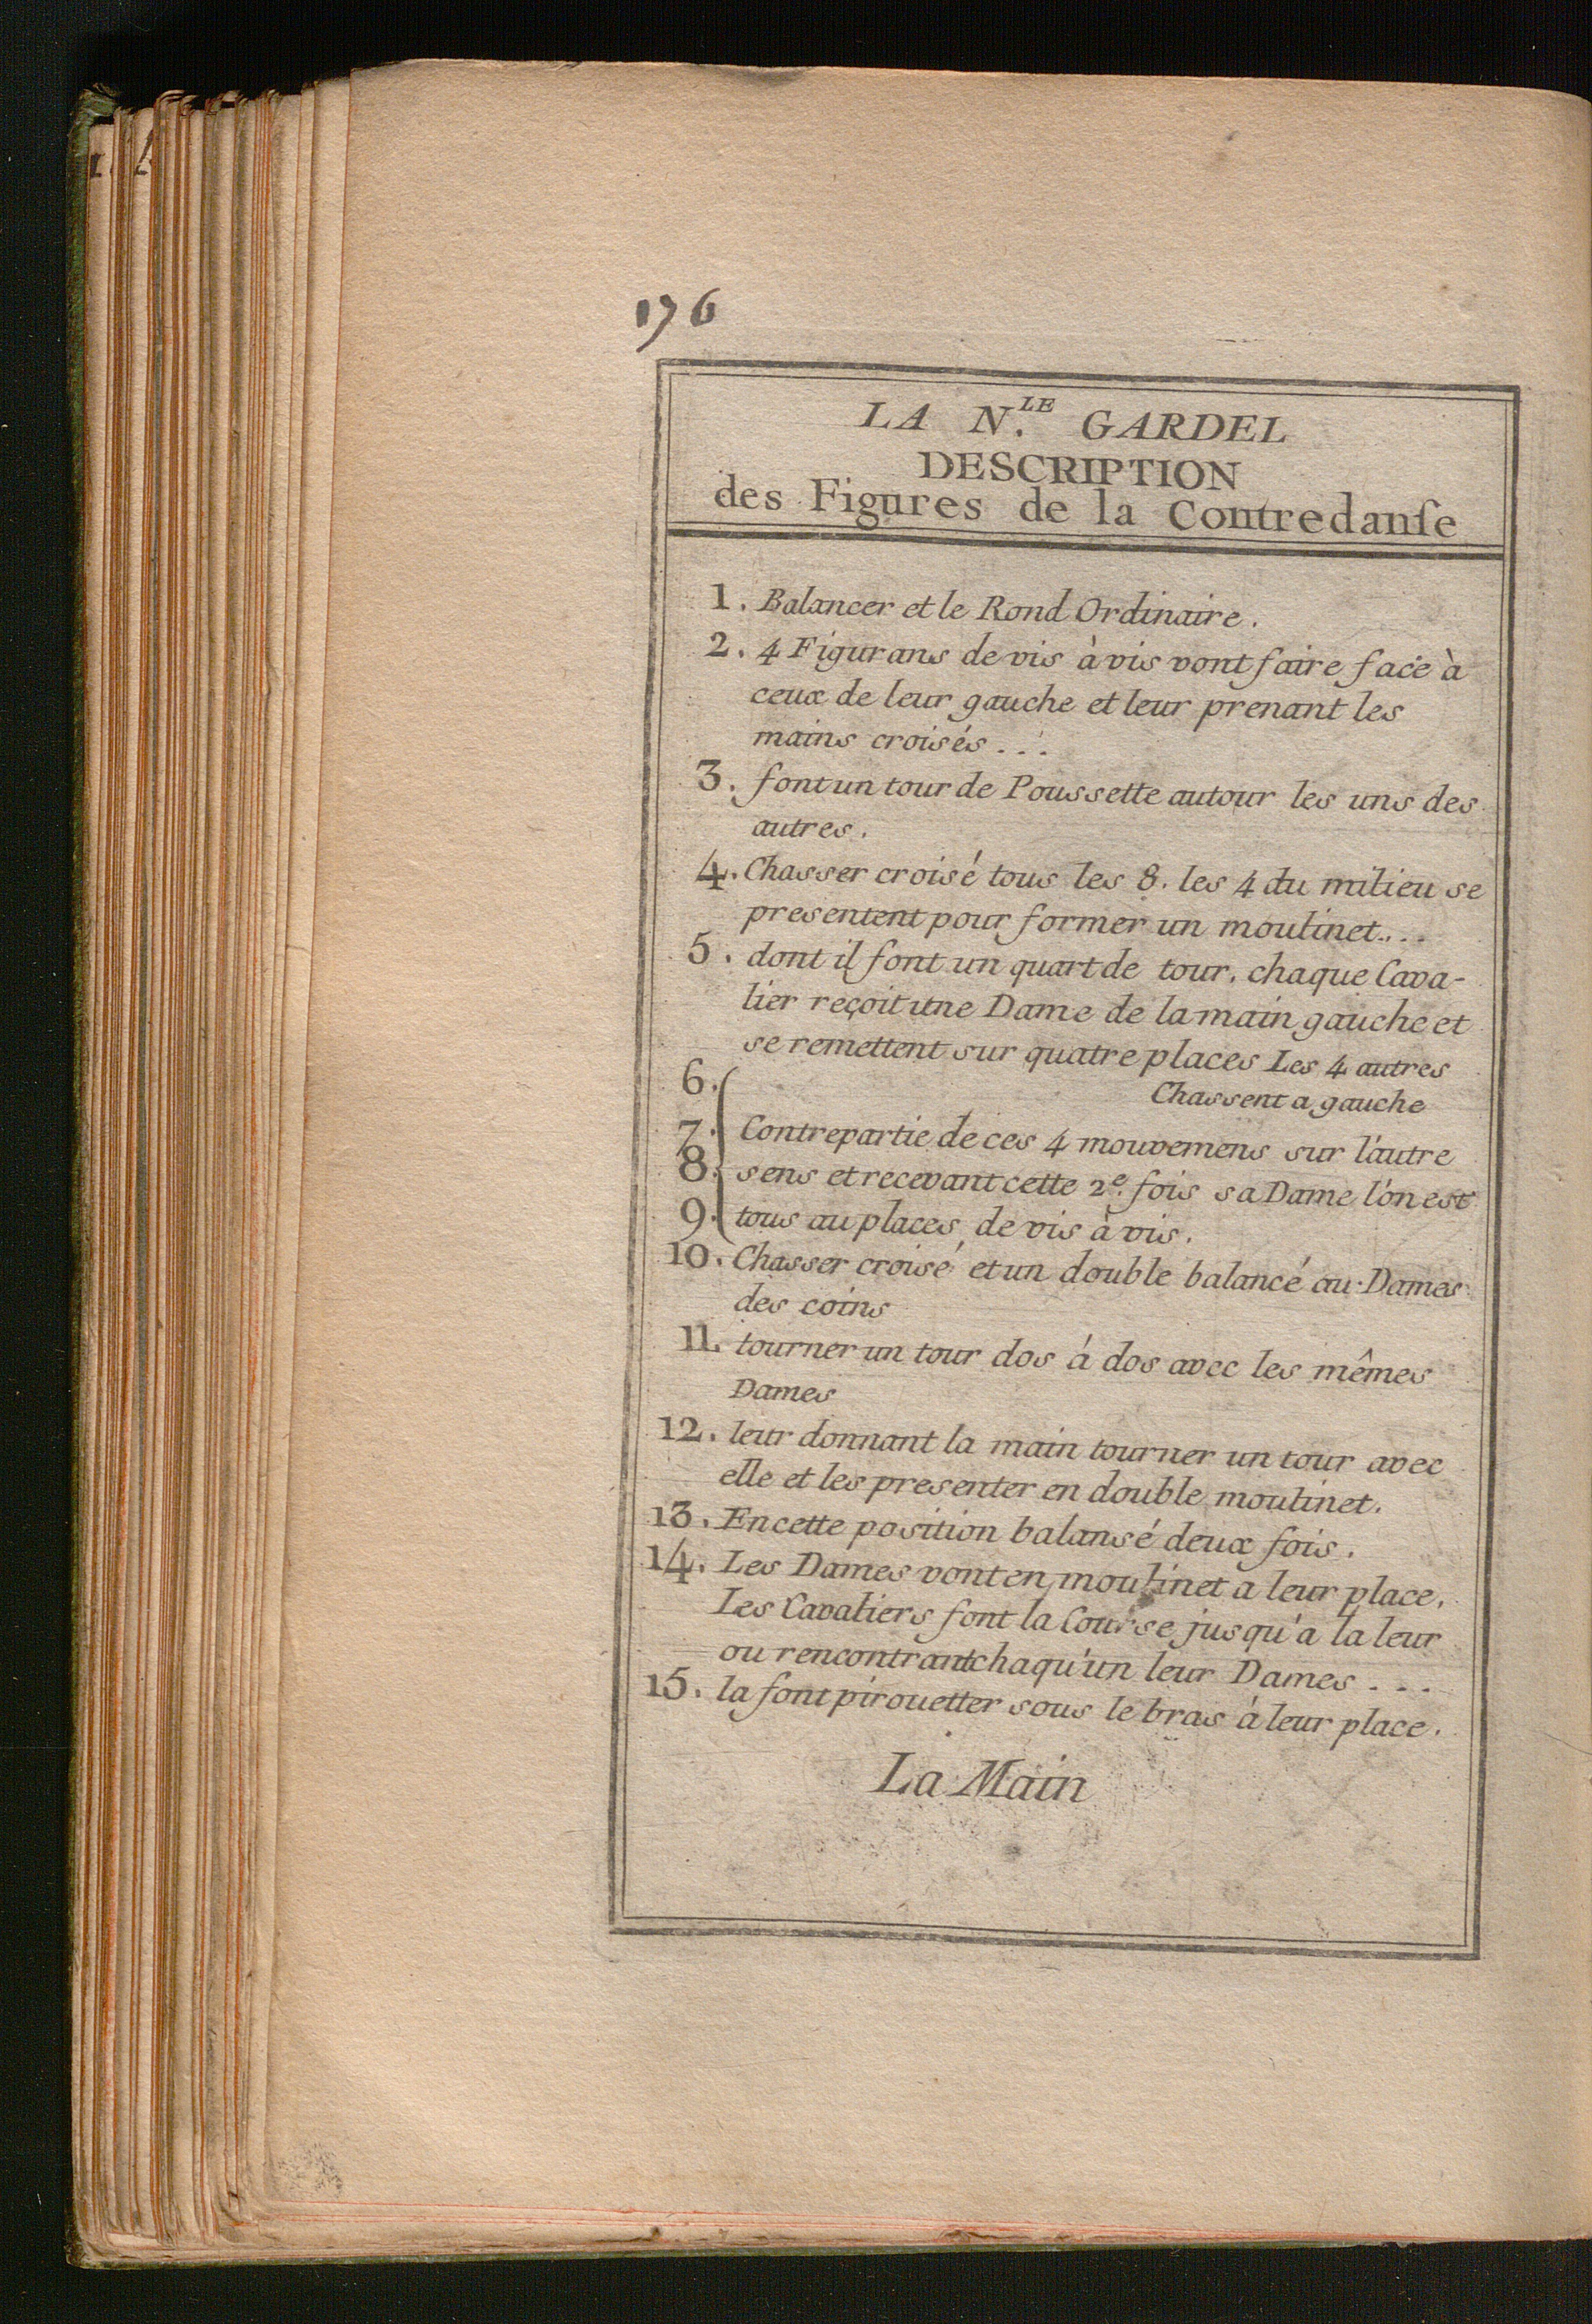 176
LA N.LE GARDEL
DESCRIPTION
des Figures de la Contredanſe
1. Balancer et le Rond Ordinaire.
2. 4 Figurans de vis à vis vont faire face à
ceux de leur gauche et leur prenant les
mains croisés...
3. font un tour de Poussette autour les uns des
autres.
4. Chasser croisé tous les 8. les 4 du milieu se
presentent pour former un moulinet...
5. dont il font un quart de tour. chaque Cava-
lier reçoit une Dame de la main gauche et
se remettent sur quatre places Les 4 autres
Chassent a gauche
6.
7. Contrepartie de ces 4 mouvemens sur l'autre
8. sens et recevant cette 2e. fois sa Dame l'on est
9. tous au places de vis à vis.
10. Chasser croisé et un double balancé au Dames
des coins
11. tourner un tour dos á dos avec les mêmes
Dames
12. leur donnant la main tourner un tour avec
elle et les presenter en double moulinet.
13. En cette position balansé deux fois.
14. Les Dames vont en moulinet a leur place.
Les Cavaliers font la Course jusqu'a la leur
ou rencontrant chaqu'un leur Dames...
15. la font pirouetter sous le bras à leur place.
La Main